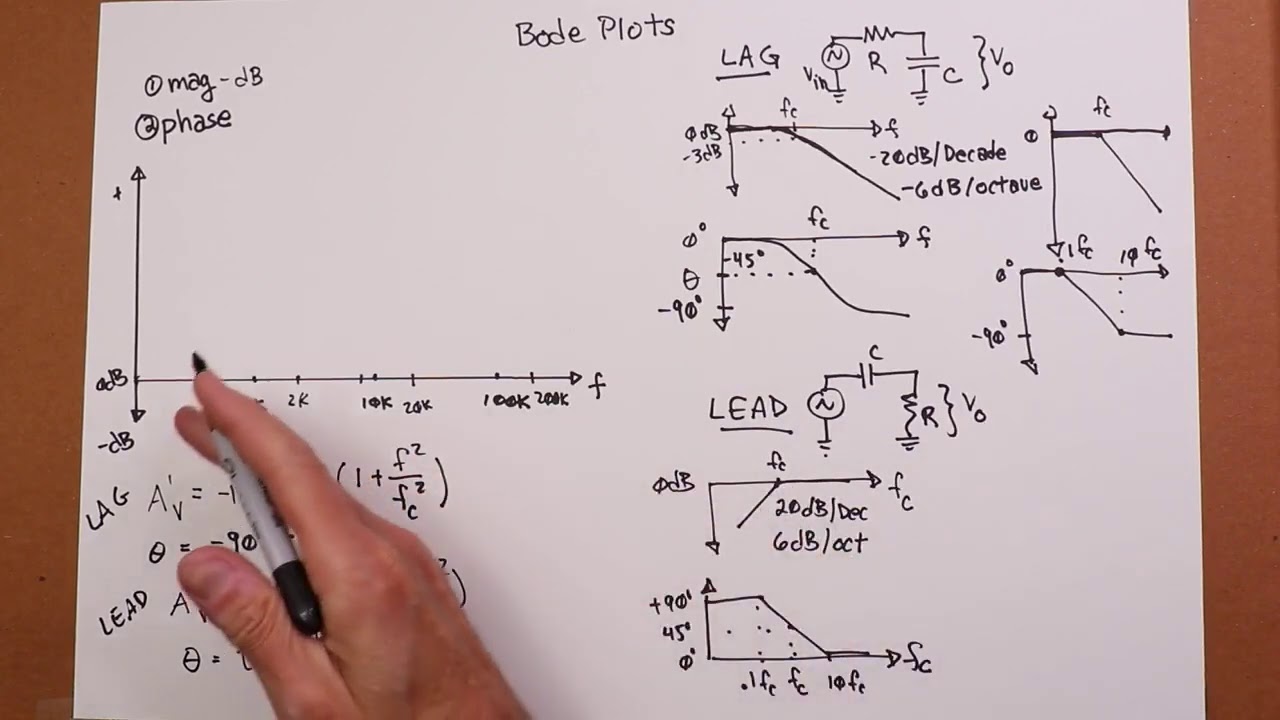 Bode Plots
①mag-dB
②phase
+
0dB
-dB
2K
10K
20K
100K
200K
f
LAG A'v = -1
(1+f²/fc²)
θ = -90
LEAD A
²)
θ =
LAG
Vin
R
C
}Vo
fc
0dB
-3dB
f
-20dB/Decade
-6dB/octave
fc
0
fc
0°
-45°
θ
-90°
f
.1fc
10fc
0°
-90°
LEAD
C
R
}Vo
fc
0dB
fc
20dB/Dec
6dB/oct
+90°
45°
0°
.1fc
fc
10fc
fc